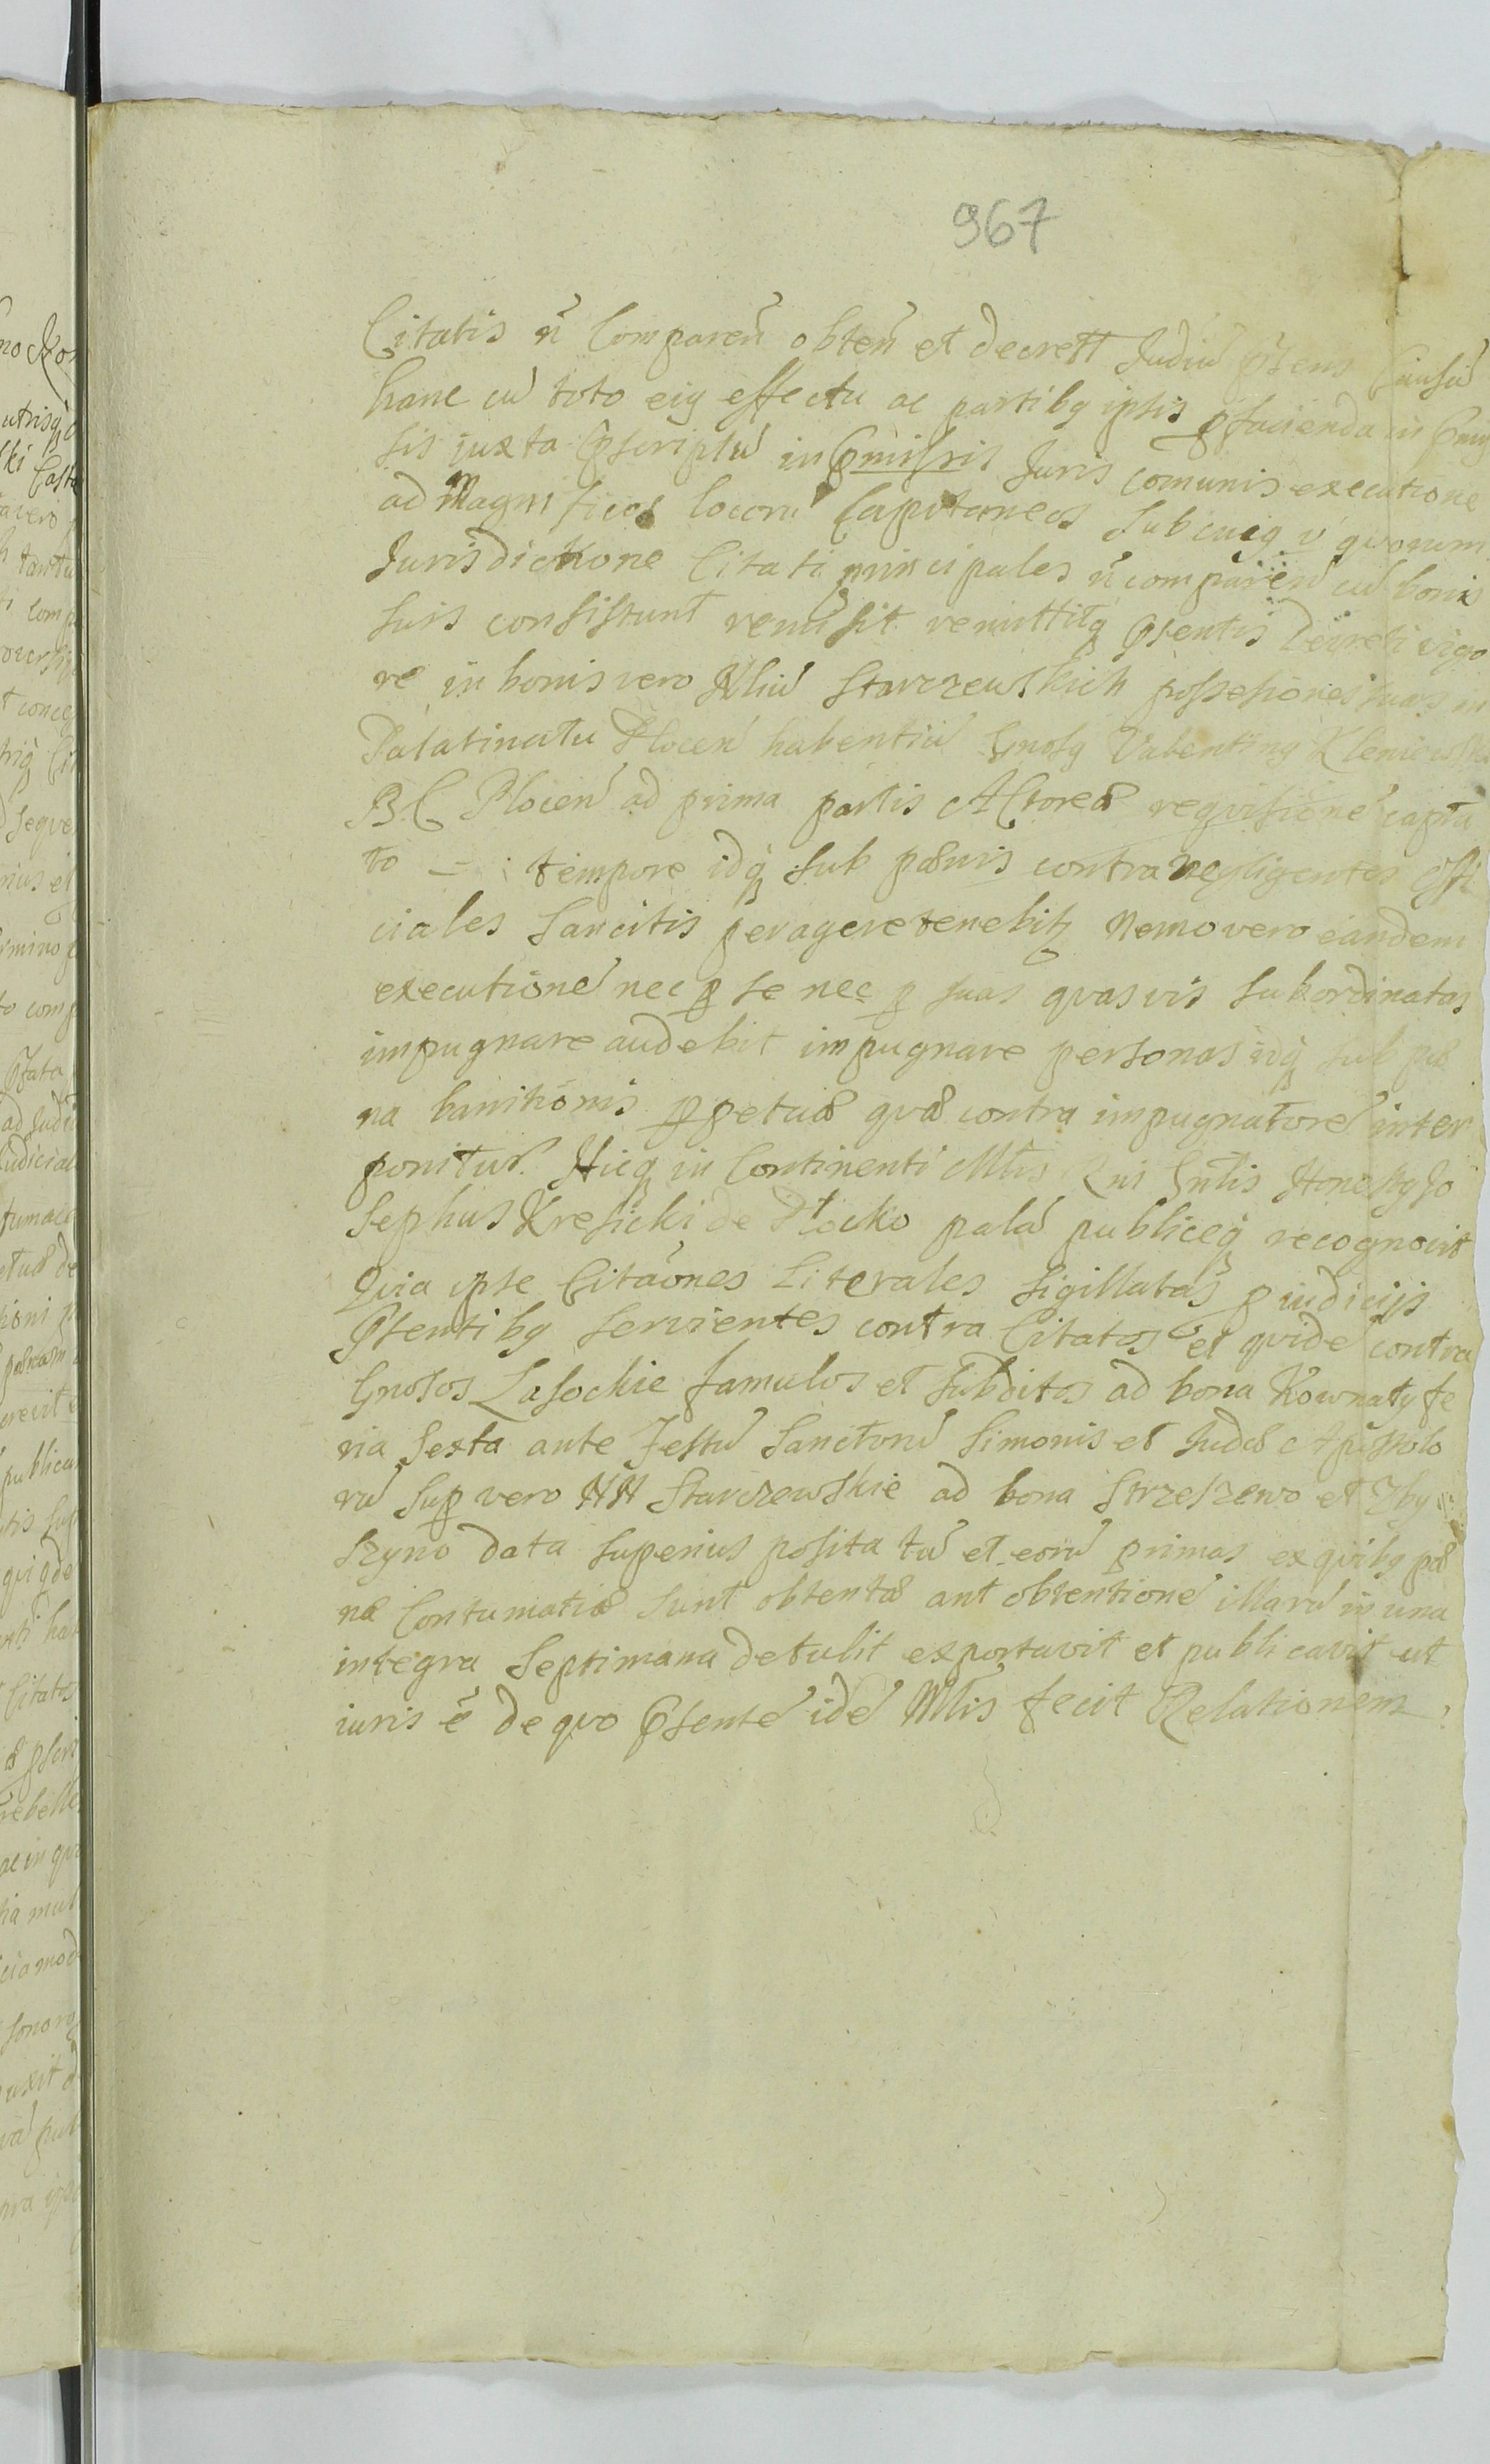 967
Citatis ñ Comparen̄ obten̄ et decrett Judiũ p̃sens Causã
hanc cũ toto eiꝯ effectu ac partibꝯ ipsis ꝓ facienda in
sis iuxta p̃scriptũ in p̃missis Juris comunis executione
ad Magnificos locorũ Capitaneos sub cuiꝯ v̓ quorum
Jurisdictione Citati principales ñ comparen̄ cũ bonis
suis consistunt remisit remittitꝗ p̃sentis Decreti vigo
re in bonis vero Nliũ Starczewskich possesiones suas in
Palatinatu Plocen̄ habentiũ Gnosꝯ Valentinꝯ Kleniewski
B C Plocen̄ ad prima partis Actoreæ requisitionẽ capta
to – tempore idꝗ sub pænis contra negligentes offi
ciales sancitis peragere tenebitꝛ Nemo vero eandem
executionẽ nec ꝑ se nec ꝑ suas quasvis subordinatas
impugnare audebit impugnare personas idꝗ sub pæ
na banitionis ꝑpetuæ quæ contra impugnatorẽ inter
ponitur. Hicꝗ in Continenti Mlis Rni Gnlis Honestꝯ Jo
sephus Kresicki de Płocko palã publiceꝗ recognovit
Quia ipse Citaõnes Literales sigillatas ꝓ iudicijs
p̃sentibꝯ servientes contra Citatos et quidẽ contra
Gnosos Lasockie famulos et subditos ad bona Kownaty fe
ria sexta ante Festũ Sanctorũ Simonis et Judæ Apostolo
rũ suꝑ vero NN Starczewskie ad bona Strzeszewo et Zby
szyno data superius posita tũ et eorũ primas ex quibꝯ pæ
næ Contumatiæ sunt obtentæ ant obtentionẽ illarũ in una
integra septimana detulit exportavit et publicavit ut
iuris ẽ de quo p̃sentẽ idẽ Mlis fecit Relationem